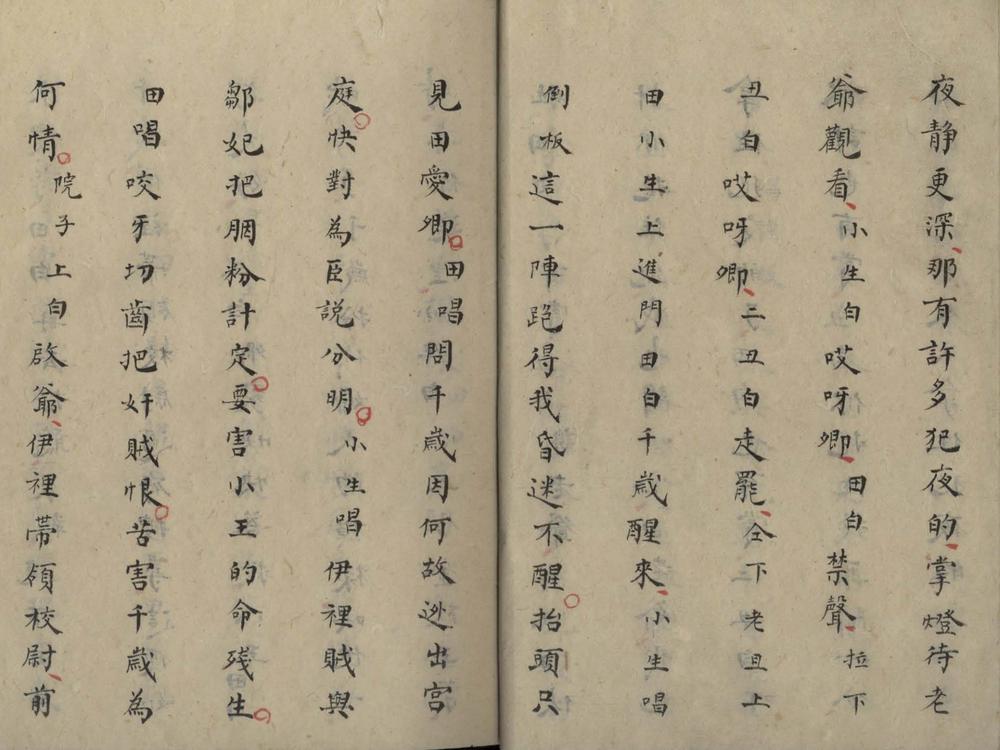 夜静更深、那有許多犯夜的、掌燈待老
爺觀看、小生白哎呀卿、田白禁聲、拉下
丑白哎呀卿、二丑白走罷、仝下老旦上
田小生上進門田白千歲醒來、小生唱
倒板這一陣跑得我昏迷不醒。抬頭只
見田愛卿。田唱問千歲因何故逃出宮
庭。快對為臣說分明。小生唱伊裡賊與
鄒妃把胭粉計定。要害小王的命殘生。
田唱咬牙切齒把奸賊恨。苦害千歲為
何情。院子上白啟爺、伊裡帶領校尉、前